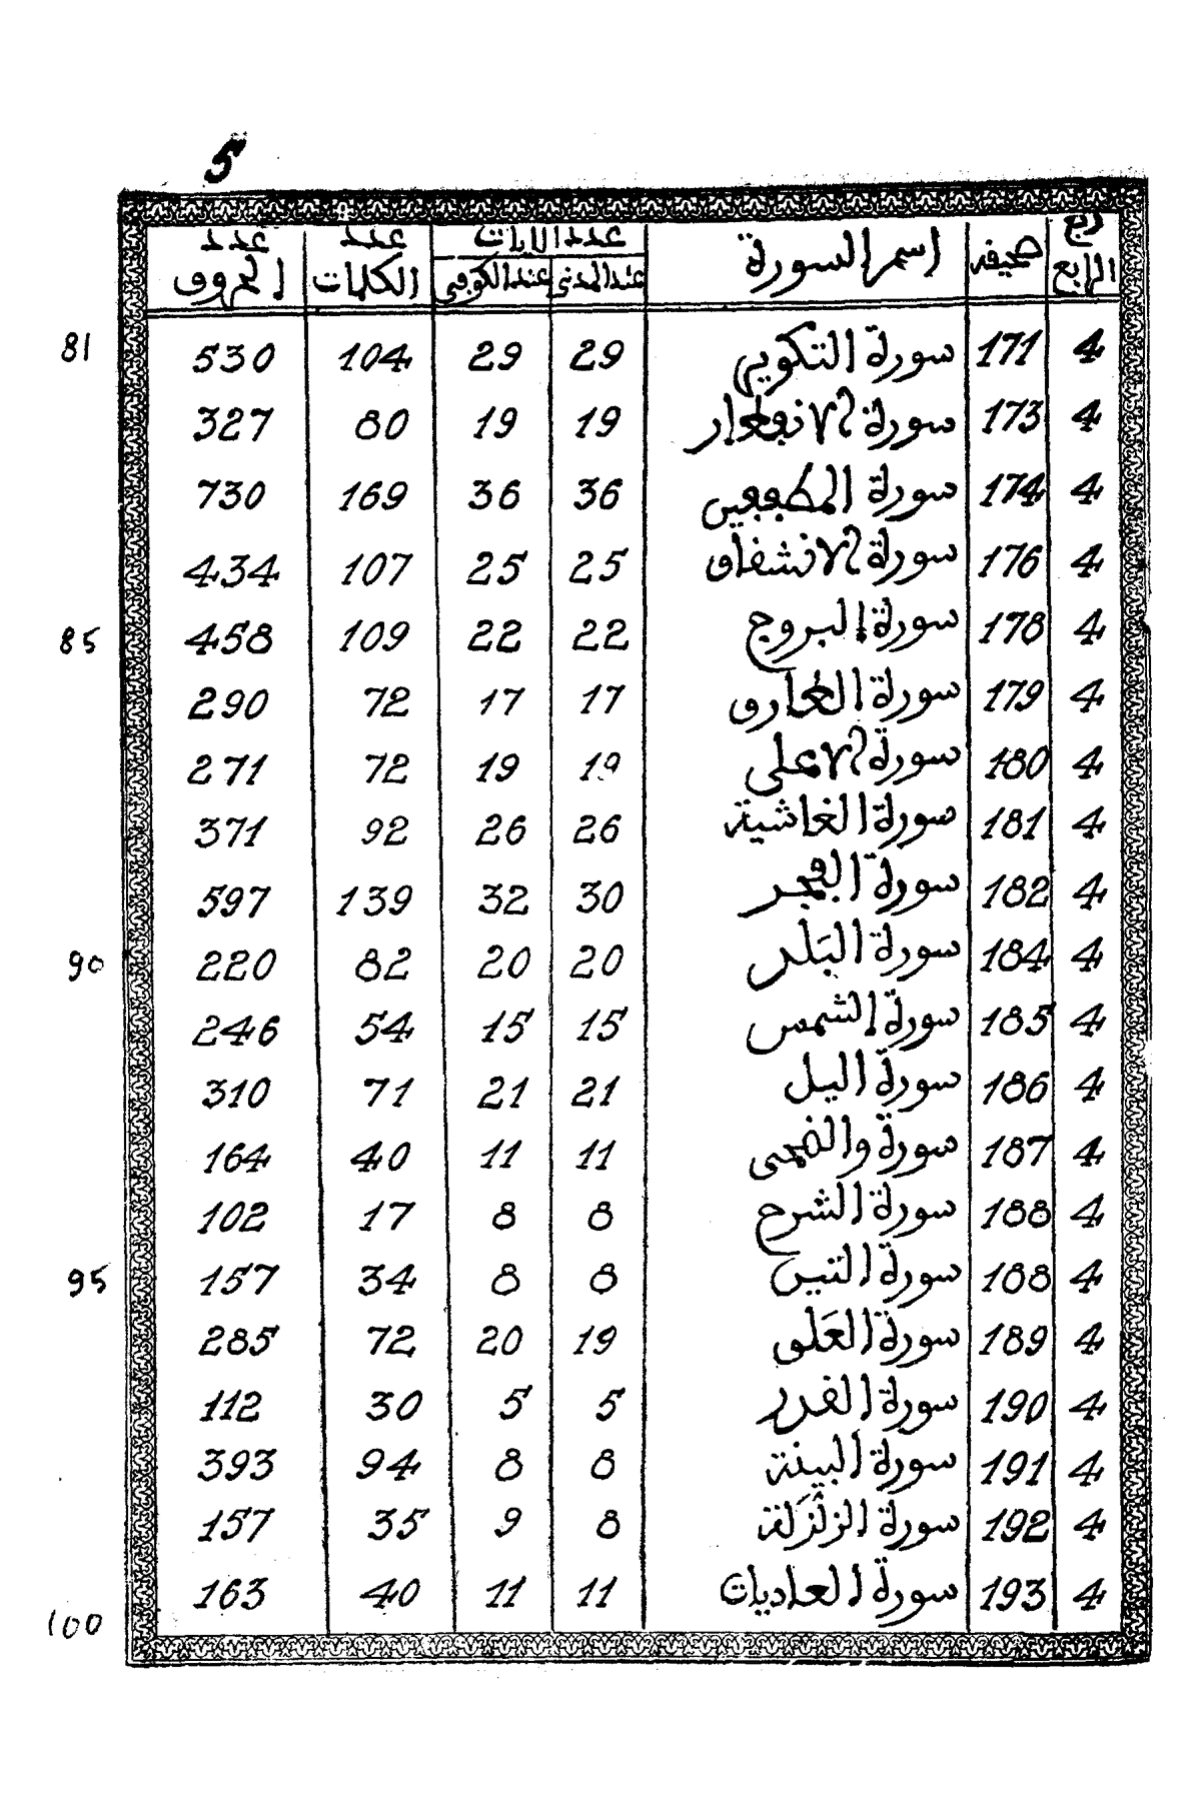 5
ربع الرابع | صحيفة | اسم السورة | عدد الايات | عدد الكلمات | عدد الحروف
عند المدني | عند الكوفي
4 | 171 | سورة التكوير | 29 | 29 | 104 | 530 | 81
4 | 173 | سورة الانفطار | 19 | 19 | 80 | 327
4 | 174 | سورة المطففين | 36 | 36 | 169 | 730
4 | 176 | سورة الانشقاق | 25 | 25 | 107 | 434
4 | 178 | سورة البروج | 22 | 22 | 109 | 458 | 85
4 | 179 | سورة الطارق | 17 | 17 | 72 | 290
4 | 180 | سورة الاعلى | 19 | 19 | 72 | 271
4 | 181 | سورة الغاشية | 26 | 26 | 92 | 371
4 | 182 | سورة الفجر | 30 | 32 | 139 | 597
4 | 184 | سورة البَلَد | 20 | 20 | 82 | 220 | 90
4 | 185 | سورة الشمس | 15 | 15 | 54 | 246
4 | 186 | سورة اليل | 21 | 21 | 71 | 310
4 | 187 | سورة والضحى | 11 | 11 | 40 | 164
4 | 188 | سورة الشرح | 8 | 8 | 17 | 102
4 | 188 | سورة التين | 8 | 8 | 34 | 157 | 95
4 | 189 | سورة العَلَق | 19 | 20 | 72 | 285
4 | 190 | سورة القدر | 5 | 5 | 30 | 112
4 | 191 | سورة البينة | 8 | 8 | 94 | 393
4 | 192 | سورة الزلْزَلة | 8 | 9 | 35 | 157
4 | 193 | سورة العاديات | 11 | 11 | 40 | 163 | 100